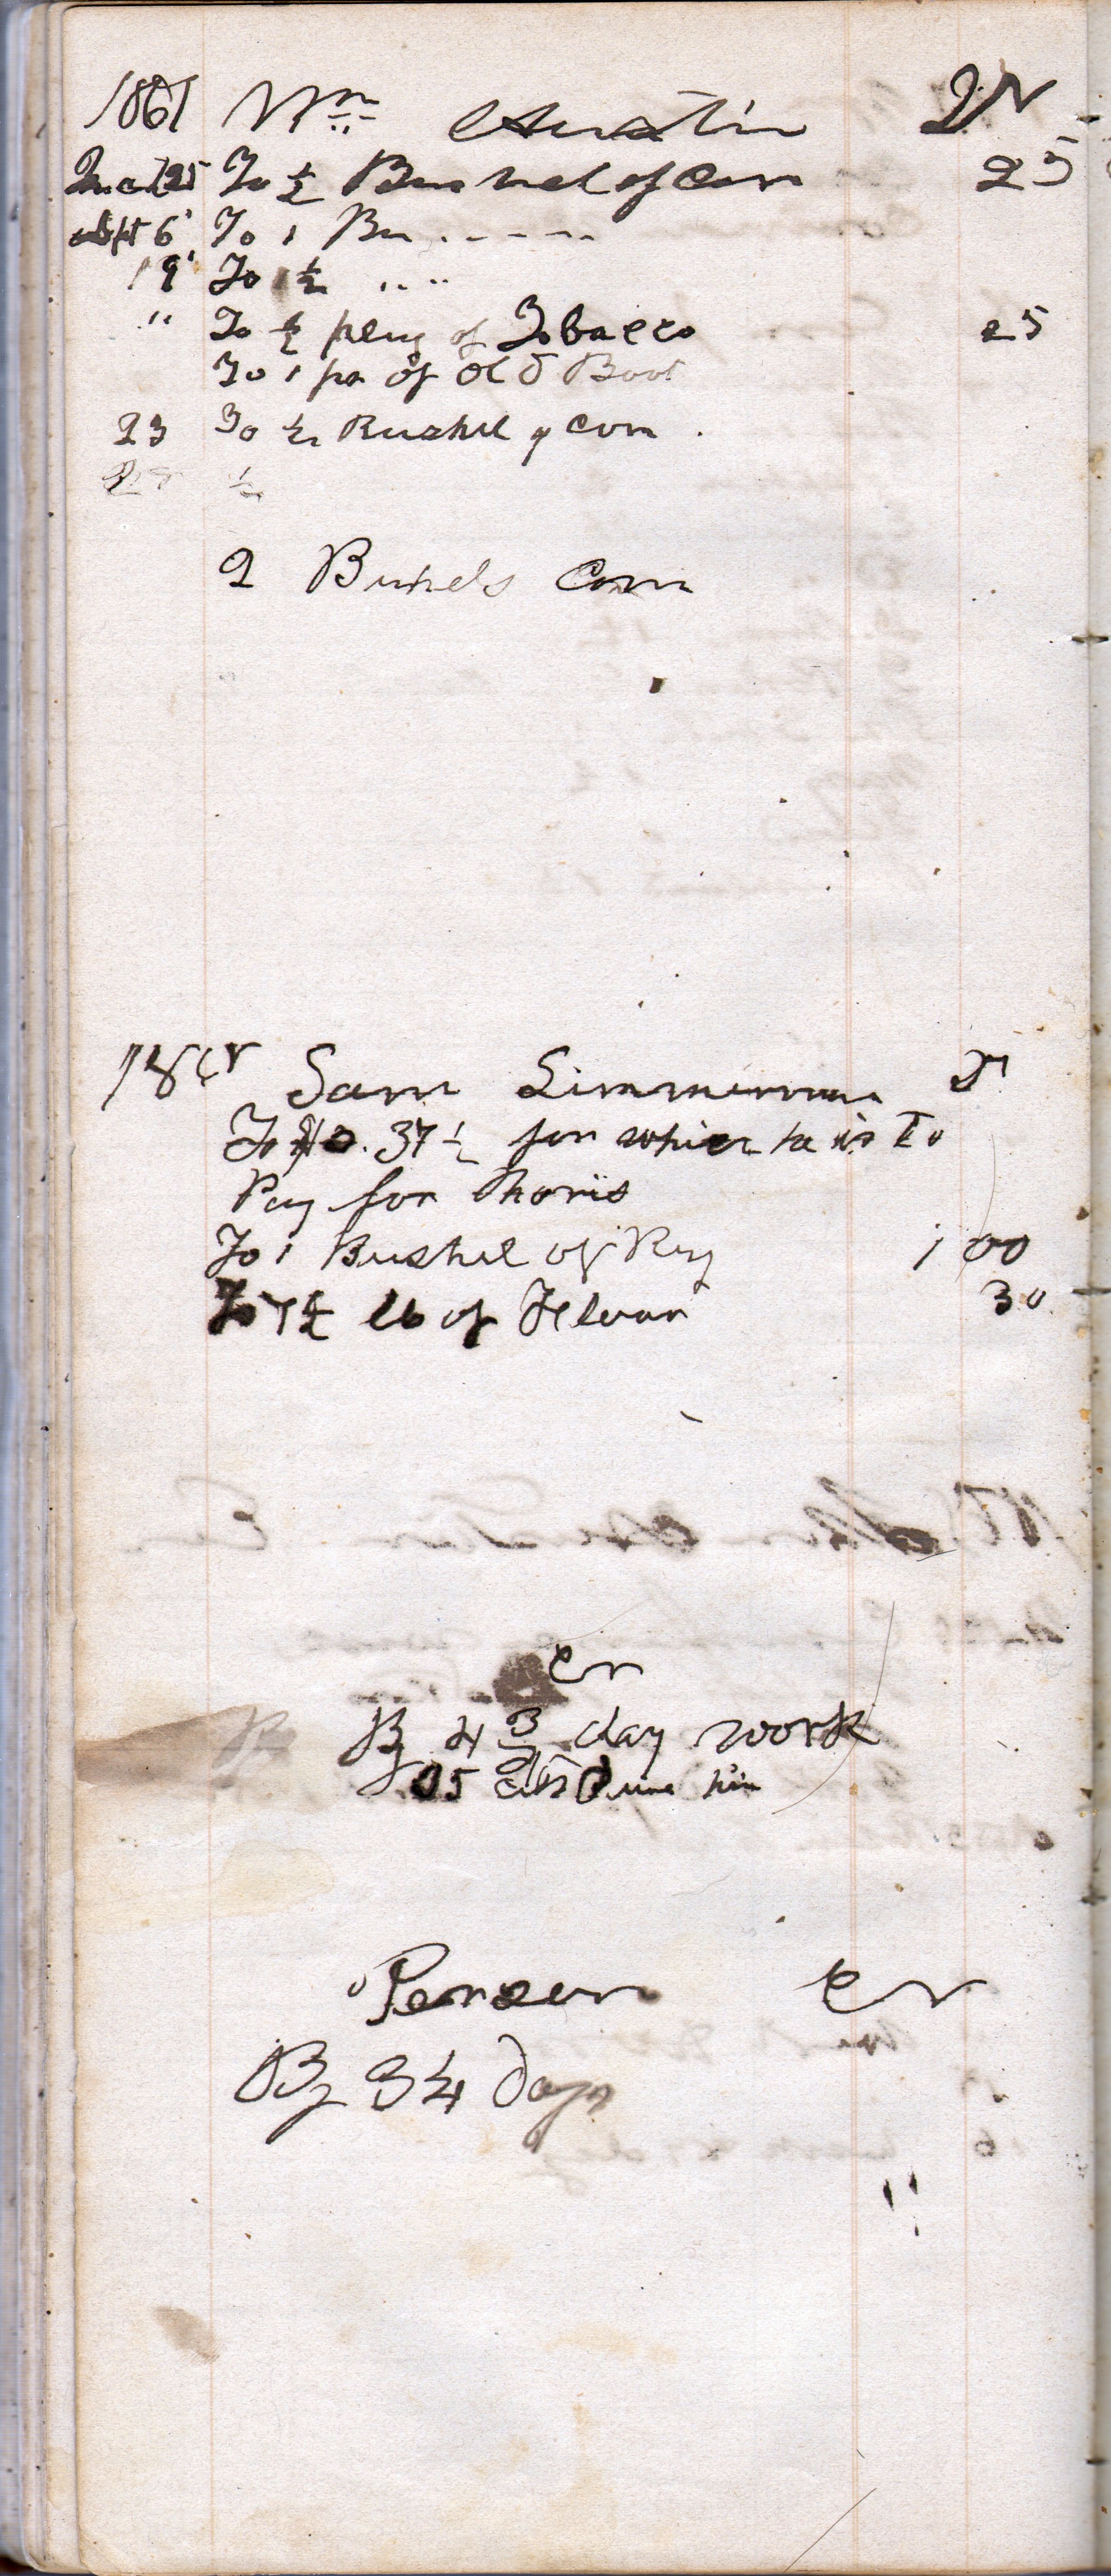 1861 Wm Austin Dr
25 To ½ Bushel of Corn 25
Sept 6 To 1 Bu " " "
19 To 1½ " "
" To ½ plug of Tobacco 25
To 1 pr of Old Boot
23 To ½ Bushel of Corn
½
2 Bushels Corn
Sam Simmerman Dr
To $0.37½ for which he is To
Pay for
To 1 Bushel of Rye 1 00
To 7½ lb of Flour 30
Cr
By 4 3 day work
cts Due him
Person Cr
By 34 Days